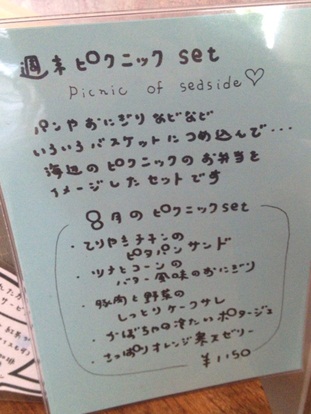 週末ピクニック set
Picnic of sedside♡
パンやおにぎりなどなど
いろいろバスケットにつめ込んで・・・
海辺のピクニックのお弁当を
イメージしたセットです
8月のピクニックset
・てりやきチキンの
ピタパンサンド
・ツナとコーンの
バター風味のおにぎり
・豚肉と野菜の
しっとりケークサレ
・かぼちゃの冷たいポタージュ
・さっぱりオレンジ寒天ゼリー
¥1150